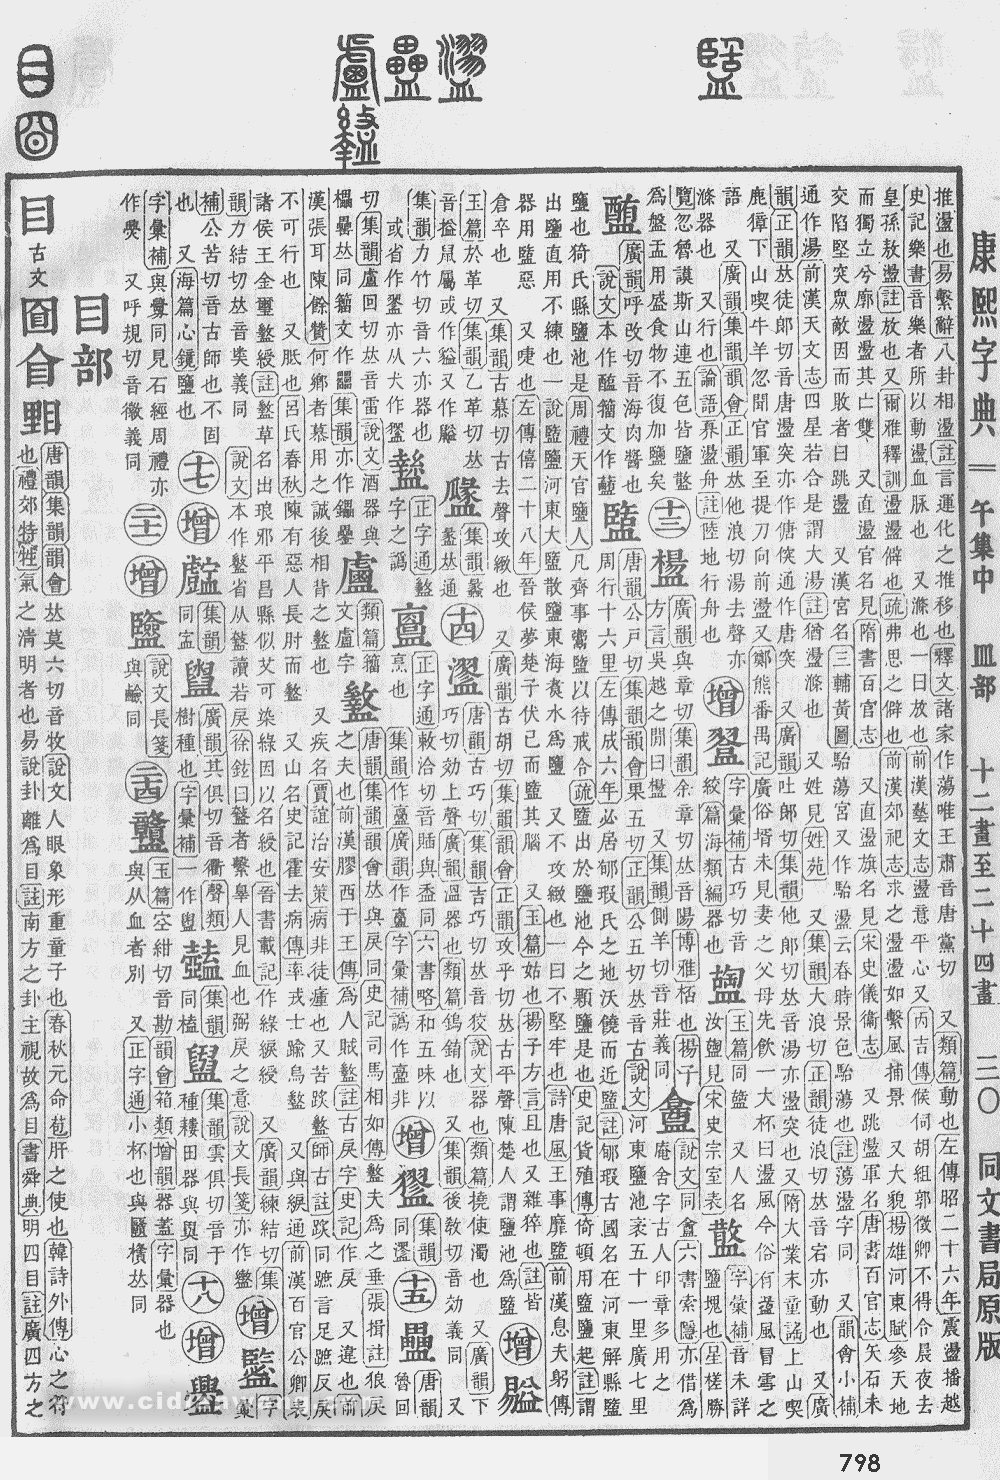 康熙字典 午集中 皿部 十二畫至二十四畫 三〇 同文書局原版
推盪也易繫辭八卦相盪註言運化之推移也釋文諸家作蕩唯王肅音唐黨切 又類篇動也左傳昭二十六年震盪播越
史記樂書音樂者所以動盪血脉也 又滌也一曰放也前漢藝文志盪意平心又丙吉傳候伺胡組郭徵卿不得令晨夜去
皇孫敖盪註盪放也 又爾雅釋訓盪盪僻也疏弗思之僻也前漢郊祀志求之盪盪如繫風捕景 又大貌揚雄河東賦參天地
而獨立兮廓盪盪其亡雙 又直盪官名見隋書百官志 又直盪旗名見宋史儀衞志 又跳盪軍名唐書百官志矢石未
交陷堅突眾敵因而敗者曰跳盪 又漢宮名三輔黃圖駘蕩宮又作駘盪云春時景色駘蕩也註蕩盪字同 又韻會小補
通作湯前漢天文志四星若合是謂大湯註猶盪滌也 又姓見姓苑 又集韻大浪切正韻徒浪切𠀤音宕亦動也 又廣
韻正韻𠀤徒郎切音唐盪突亦作傏突通作唐突 又廣韻吐郎切集韻他郎切𠀤音湯亦盪突也又隋大業末童謠上山喫
鹿獐下山喫牛羊忽聞官軍至提刀向前盪又鄺熊番禺記廣俗壻未見妻之父母先飮一大杯曰盪風今俗有盪風冒雪之
語 又廣韻集韻韻會正韻𠀤他浪切湯去聲亦
滌器也 又行也論語奡盪舟註陸地行舟也
增 字彙補古巧切音絞篇海類編器也
玉篇同 汝 見宋史宗室表 又人名
字彙補音未詳鹽塊也星槎勝
覽忽嶜謨斯山連五色皆鹽鑿
爲盤盂用盛食物不復加鹽矣
十三
廣韻與章切集韻余章切𠀤音陽博雅桮也揚子方言吳越之閒曰 又集韻側羊切音莊義同
盦 說文同 六書索隱亦借爲庵舍字古人印章多用之
醢 廣韻呼改切音海肉醬也
說文本作醢籀文作
盬 唐韻公戸切集韻韻會果五切正韻公五切𠀤音古說文河東鹽池袤五十一里廣七里
周行十六里左傳成六年必居郇瑕氏之地沃饒而近盬註郇瑕古國名在河東解縣盬
鹽也猗氏縣鹽池是 周禮天官鹽人凡齊事鬻盬以待戒令疏盬出於鹽池今之顆鹽是也史記貨殖傳倚頓用盬鹽起註謂
出鹽直用不練也一說盬鹽河東大鹽散鹽東海煮水爲鹽 又不攻緻也一曰不堅牢也詩唐風王事靡盬前漢息夫躬傳
器用盬惡 又啑也左傳僖二十八年晉侯夢楚子伏己而盬其腦 又玉篇姑也揚子方言且也又雜猝也註皆
倉卒也 又集韻古慕切古去聲攻緻也 又廣韻古胡切集韻韻會正韻攻乎切𠀤古平聲陳楚人謂鹽池爲盬
增
玉篇於革切集韻乙革切𠀤
音搤鼠屬或作貖又作𧮫
十四
唐韻古巧切集韻吉巧切𠀤音狡說文器也類篇撓使濁也 又廣韻下
巧切効上聲廣韻溫器也類篇鎢錥也 又集韻後敎切音効義同 又
集韻力竹切音六亦器也
或省作 亦从犬作
正字通盩字之譌
正字通 也
正字通敕洽切音 與 同六書略和五味以
集韻作盍廣韻作 字彙補譌作 非
增 集韻同 十五
罍 唐韻魯回
切集韻盧回切𠀤音雷說文酒器與
櫑罍𠀤同籀文作 集韻亦作鑘罍
盧 類篇籀文盧字
盭 唐韻集韻韻會𠀤與戾同史記司馬相如傳盭夫爲之垂涕張揖註狼戾
之夫也前漢膠西于王傳爲人賊盭註古戾字史記作戾 又違也前
漢張耳陳餘贊何鄉者慕用之誠後相背之盭也 又疾名賈誼治安策病非徒瘇也又苦跌盭師古註跌同蹠言足蹠反戾
不可行也 又胝也呂氏春秋陳有惡人長肘而盭 又山名史記霍去病傳率戎士踰烏盭 又與綟通前漢百官公卿表
諸侯王金璽盭綬註盭草名出琅邪平昌縣似艾可染綠因以名綬也晉書載記作綠綟綬 又廣韻練結切集
韻力結切𠀤音㑦義同 說文本作盭省从盭讀若戾徐鉉曰盩者繫辠人見血也弼戾之意說文長箋亦作
增 字彙
補公苦切音古師也不固
也 又海篇心鏡鹽也
十七 增
集韻同 說文長箋
廣韻其俱切音衢聲類樹種也字彙補一作
集韻同榼 集韻雲俱切音于
種耬田器與 同 十八 增
字彙補與 同見石經周禮亦
作㸑 又呼規切音徽義同
二十 增 與鹼同
二十四
玉篇空紺切音勘韻會箱類增韻器蓋字彙器也
與从血者別 又正字通小杯也與 𠀤同
目部
目 古文 唐韻集韻韻會𠀤莫六切音牧說文人眼象形重童子也春秋元命苞肝之使也韓詩外傳心之符
也禮郊特牲氣之淸明者也易說卦離爲目註南方之卦主視故爲目書舜典明四目註廣四方之
www.cidianwang.com
798